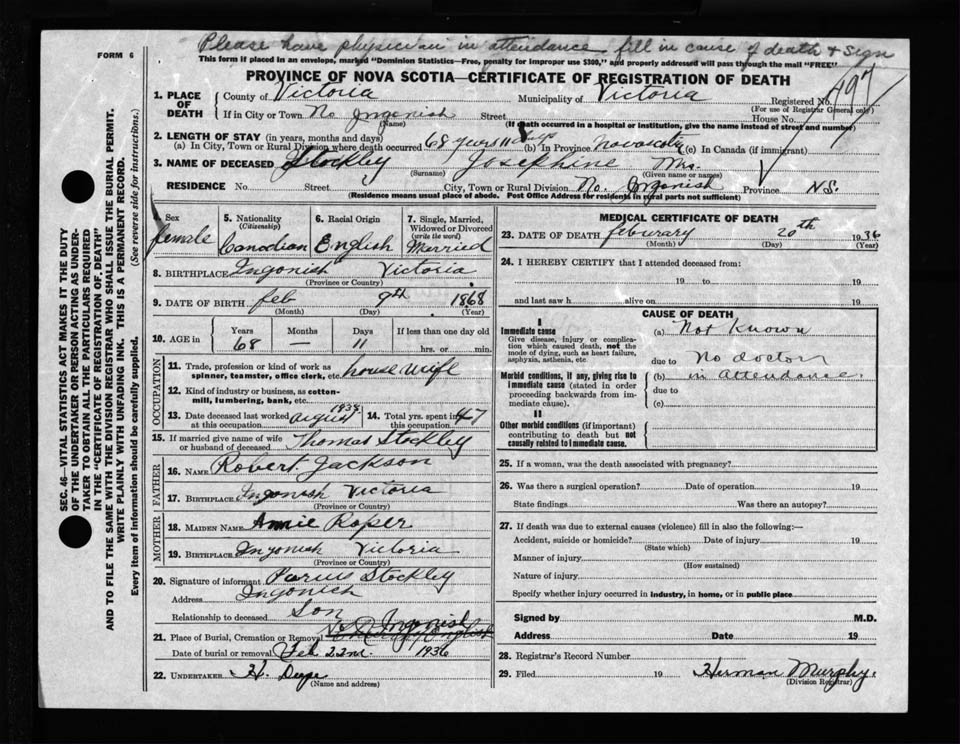 Please have physician in attendance fill in cause of death & sign
FORM 6
This form if placed in an envelope, marked "Dominion Statistics—Free, penalty for improper use $300," and properly addressed will pass through the mail "FREE"
PROVINCE OF NOVA SCOTIA—CERTIFICATE OF REGISTRATION OF DEATH
SEC. 46—VITAL STATISTICS ACT MAKES IT THE DUTY
OF THE UNDERTAKER OR PERSON ACTING AS UNDER-
TAKER TO OBTAIN ALL THE PARTICULARS REQUIRED
IN THE "CERTIFICATE OF REGISTRATION OF DEATH"
AND TO FILE THE SAME WITH THE DIVISION REGISTRAR WHO SHALL ISSUE THE BURIAL PERMIT.
WRITE PLAINLY WITH UNFADING INK. THIS IS A PERMANENT RECORD.
Every item of information should be carefully supplied. (See reverse side for instructions.)
1. PLACE OF DEATH County of Victoria Municipality of Victoria Registered No. 497
(For use of Registrar General only)
If in City or Town No Ingonish Street House No.
(Name) (If death occurred in a hospital or institution, give the name instead of street and number)
2. LENGTH OF STAY (in years, months and days)
(a) In City, Town or Rural Division where death occurred 68 years 11 days (b) In Province Novascotia (c) In Canada (if immigrant)
3. NAME OF DECEASED Stockley Josephine Mrs.
(Surname) (Given name or names)
RESIDENCE No. Street City, Town or Rural Division No. Ingonish Province N.S.
(Residence means usual place of abode. Post Office Address for residents in rural parts not sufficient)
4. Sex female
5. Nationality (Citizenship) Canadian
6. Racial Origin English
7. Single, Married, Widowed or Divorced (write the word) Married
8. BIRTHPLACE Ingonish Victoria
(Province or Country)
9. DATE OF BIRTH Feb 9th 1868
(Month) (Day) (Year)
10. AGE in Years 68 Months — Days 11 If less than one day old hrs. or min.
OCCUPATION
11. Trade, profession or kind of work as spinner, teamster, office clerk, etc. house wife
12. Kind of industry or business, as cotton-mill, lumbering, bank, etc.
13. Date deceased last worked at this occupation august 1935 14. Total yrs. spent in this occupation 47
15. If married give name of wife or husband of deceased Thomas Stockley
FATHER
16. NAME Robert Jackson
17. BIRTHPLACE Ingonish Victoria
(Province or Country)
MOTHER
18. MAIDEN NAME Annie Roper
19. BIRTHPLACE Ingonish Victoria
(Province or Country)
20. Signature of informant Stockley
Address Ingonish
Relationship to deceased Son
21. Place of Burial, Cremation or Removal Ingonish
Date of burial or removal Feb 22nd 1936
22. UNDERTAKER H.
(Name and address)
MEDICAL CERTIFICATE OF DEATH
23. DATE OF DEATH feburary 20th 1936
(Month) (Day) (Year)
24. I HEREBY CERTIFY that I attended deceased from:
19 to 19
and last saw h alive on 19
CAUSE OF DEATH
I
Immediate cause
Give disease, injury or complication which caused death, not the mode of dying, such as heart failure, asphyxia, asthenia, etc.
(a) Not Known
due to No doctor
Morbid conditions, if any, giving rise to immediate cause (stated in order proceeding backwards from immediate cause).
(b) in attendance.
due to
(c)
II
Other morbid conditions (if important) contributing to death but not causally related to immediate cause.
25. If a woman, was the death associated with pregnancy?
26. Was there a surgical operation? Date of operation 19
State findings Was there an autopsy?
27. If death was due to external causes (violence) fill in also the following:—
Accident, suicide or homicide? Date of injury 19
(State which)
Manner of injury
(How sustained)
Nature of injury
Specify whether injury occurred in industry, in home, or in public place
Signed by M.D.
Address Date 19
28. Registrar's Record Number
29. Filed 19 Herman Murphy.
(Division Registrar)